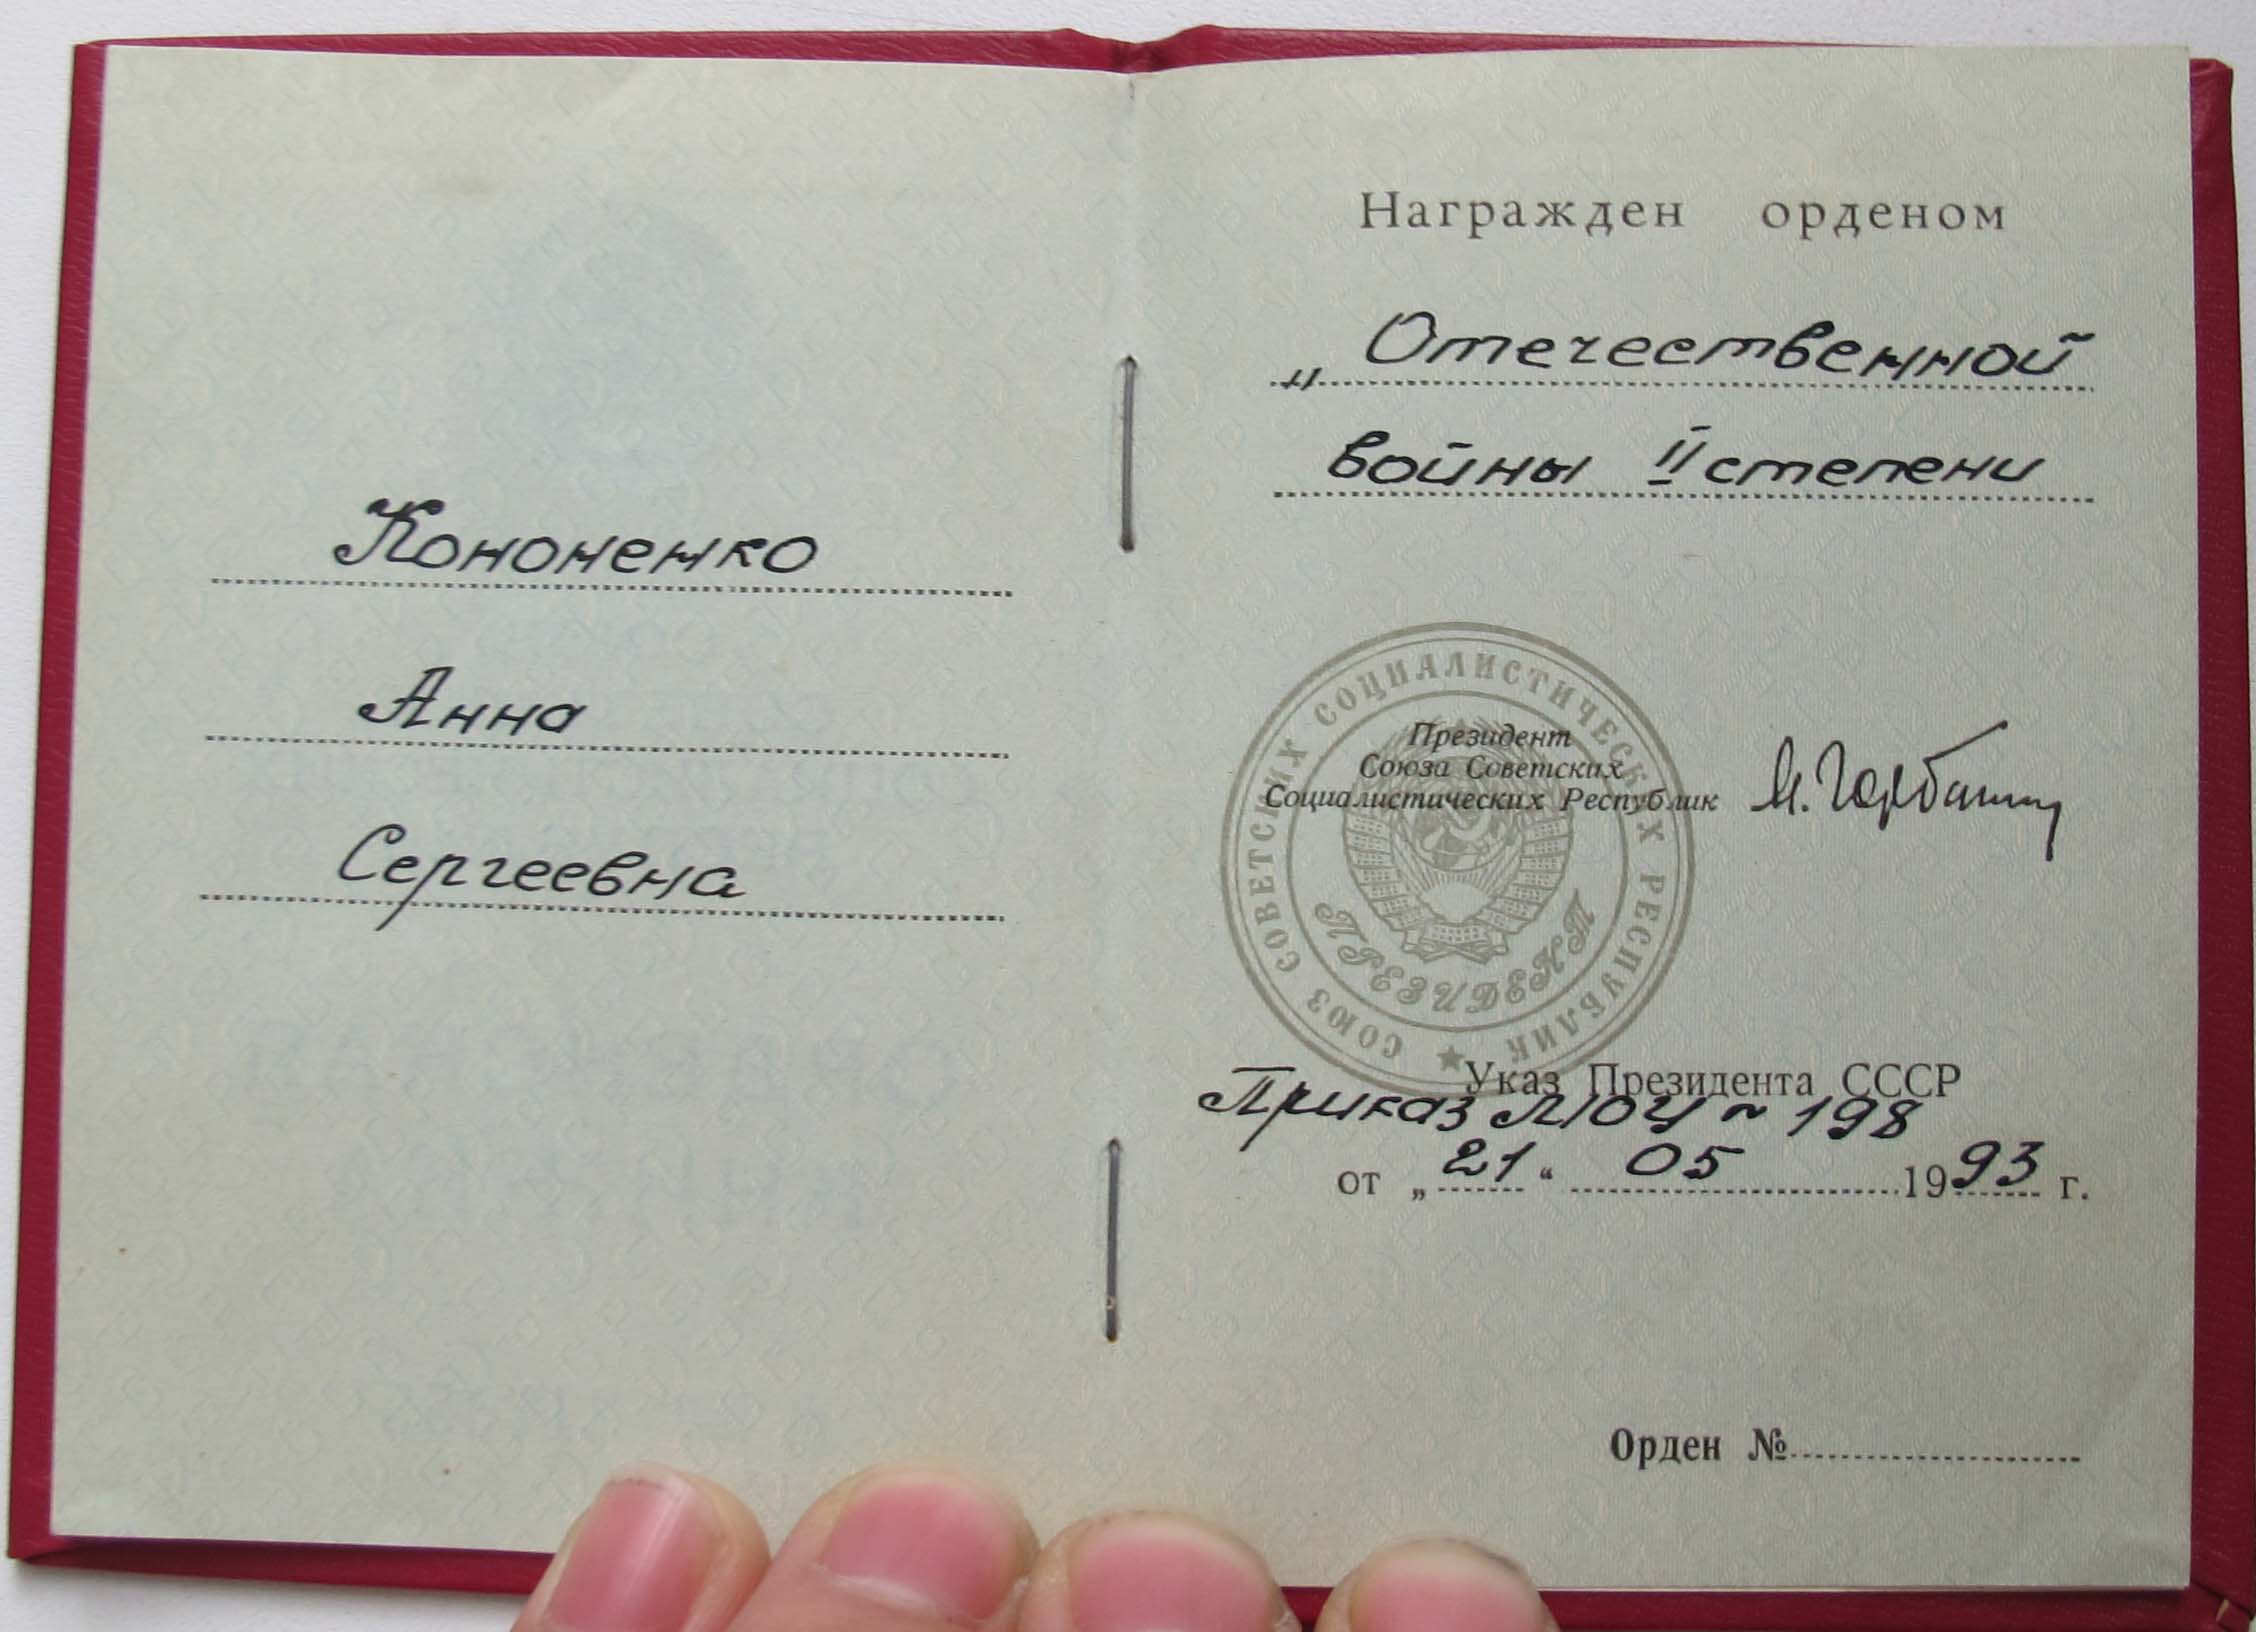 Кононенко
Анна
Сергеевна
Награжден орденом
„Отечественной
войны II степени
СОЮЗ СОВЕТСКИХ СОЦИАЛИСТИЧЕСКИХ РЕСПУБЛИК
ПРЕЗИДЕНТ
Президент
Союза Советских
Социалистических Республик
М. Горбачев
Указ Президента СССР
Приказ ЛЮУ ~ 198
от „21“ 05 1993 г.
Орден №